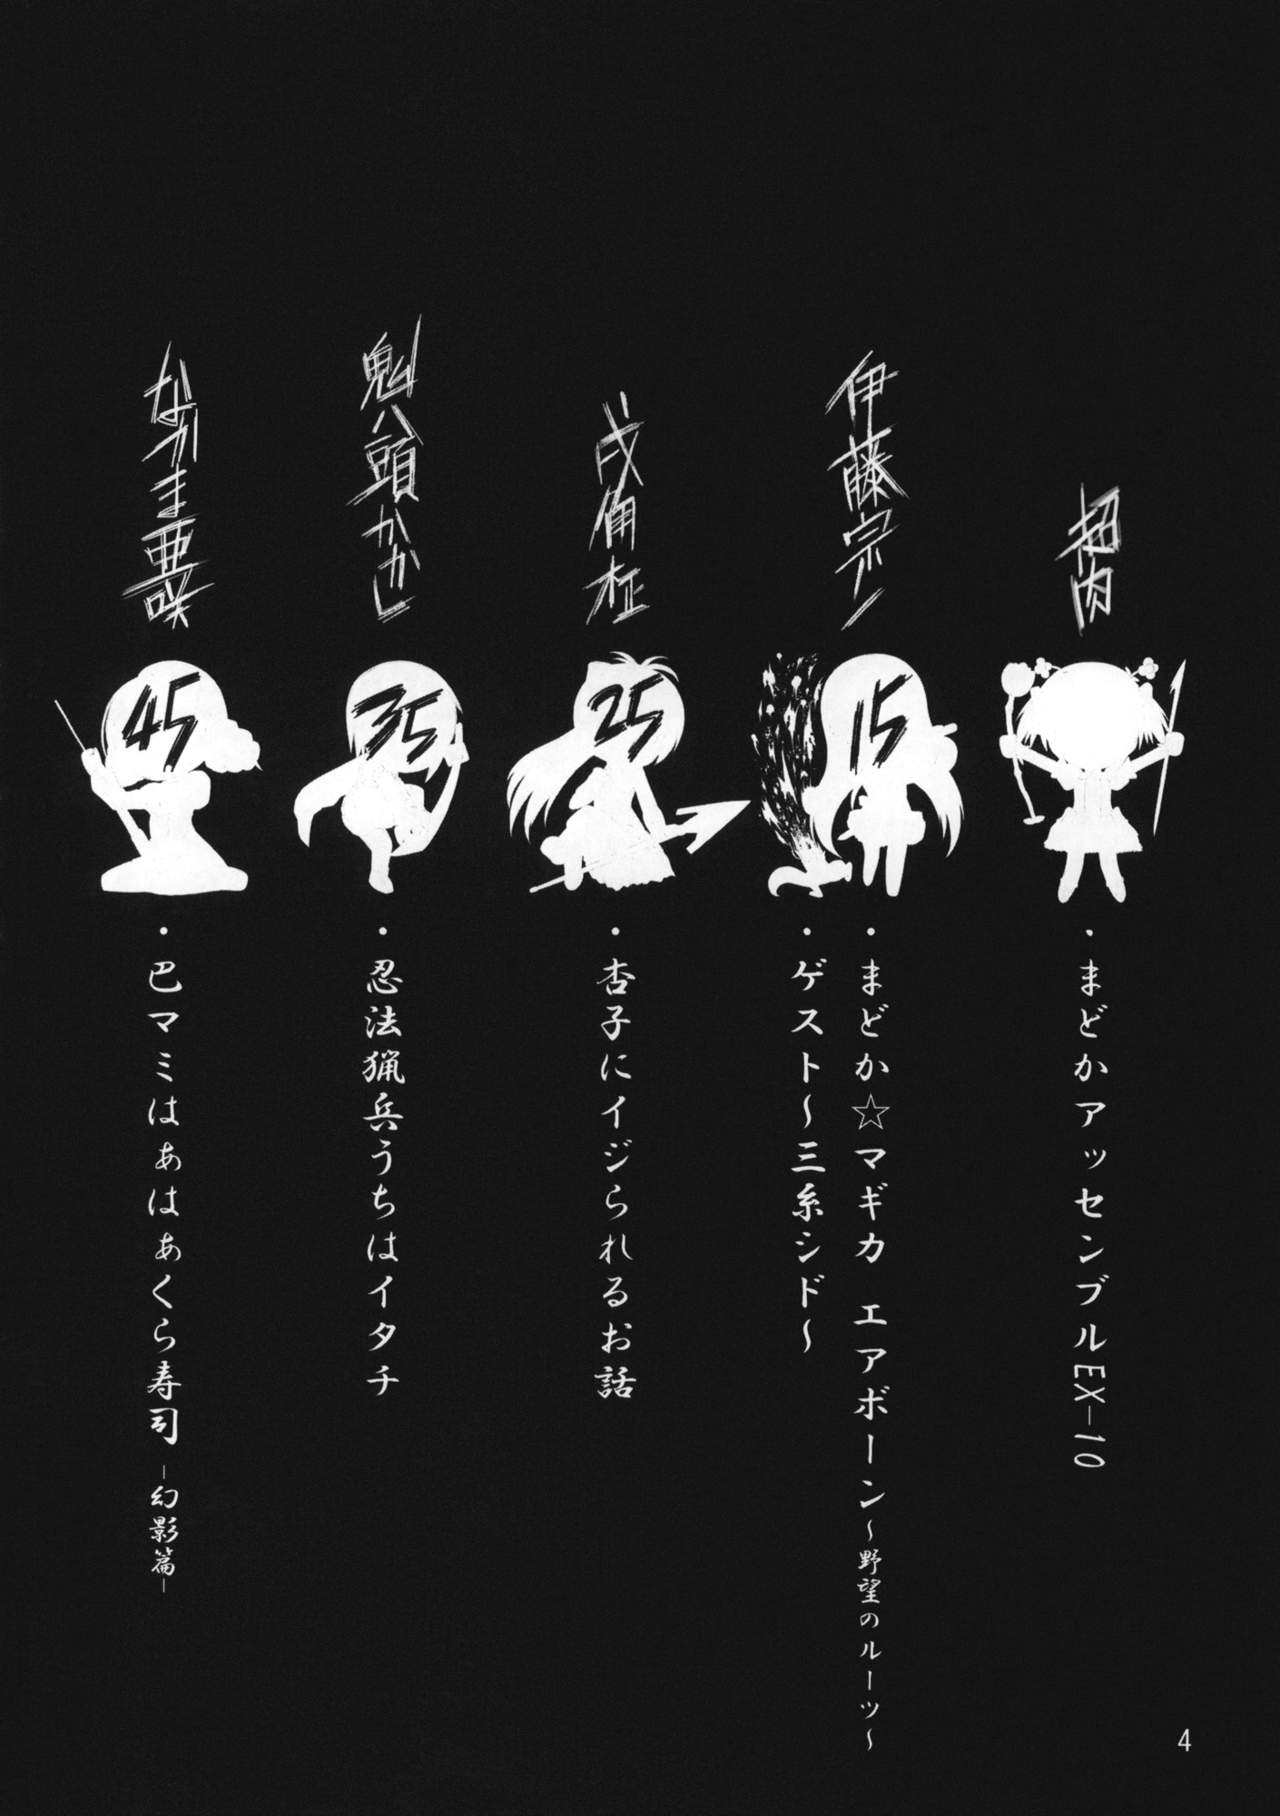 超肉
・まどかアッセンブルEX-10
伊藤宗一
15
・まどか☆マギカ エアボーン～野望のルーツ～
・ゲスト～三糸シド～
戌角柾
25
・杏子にイジられるお話
魁八頭かかし
35
・忍法猟兵うちはイタチ
なかま亜咲
45
・巴マミはぁはぁくら寿司 -幻影篇-
4